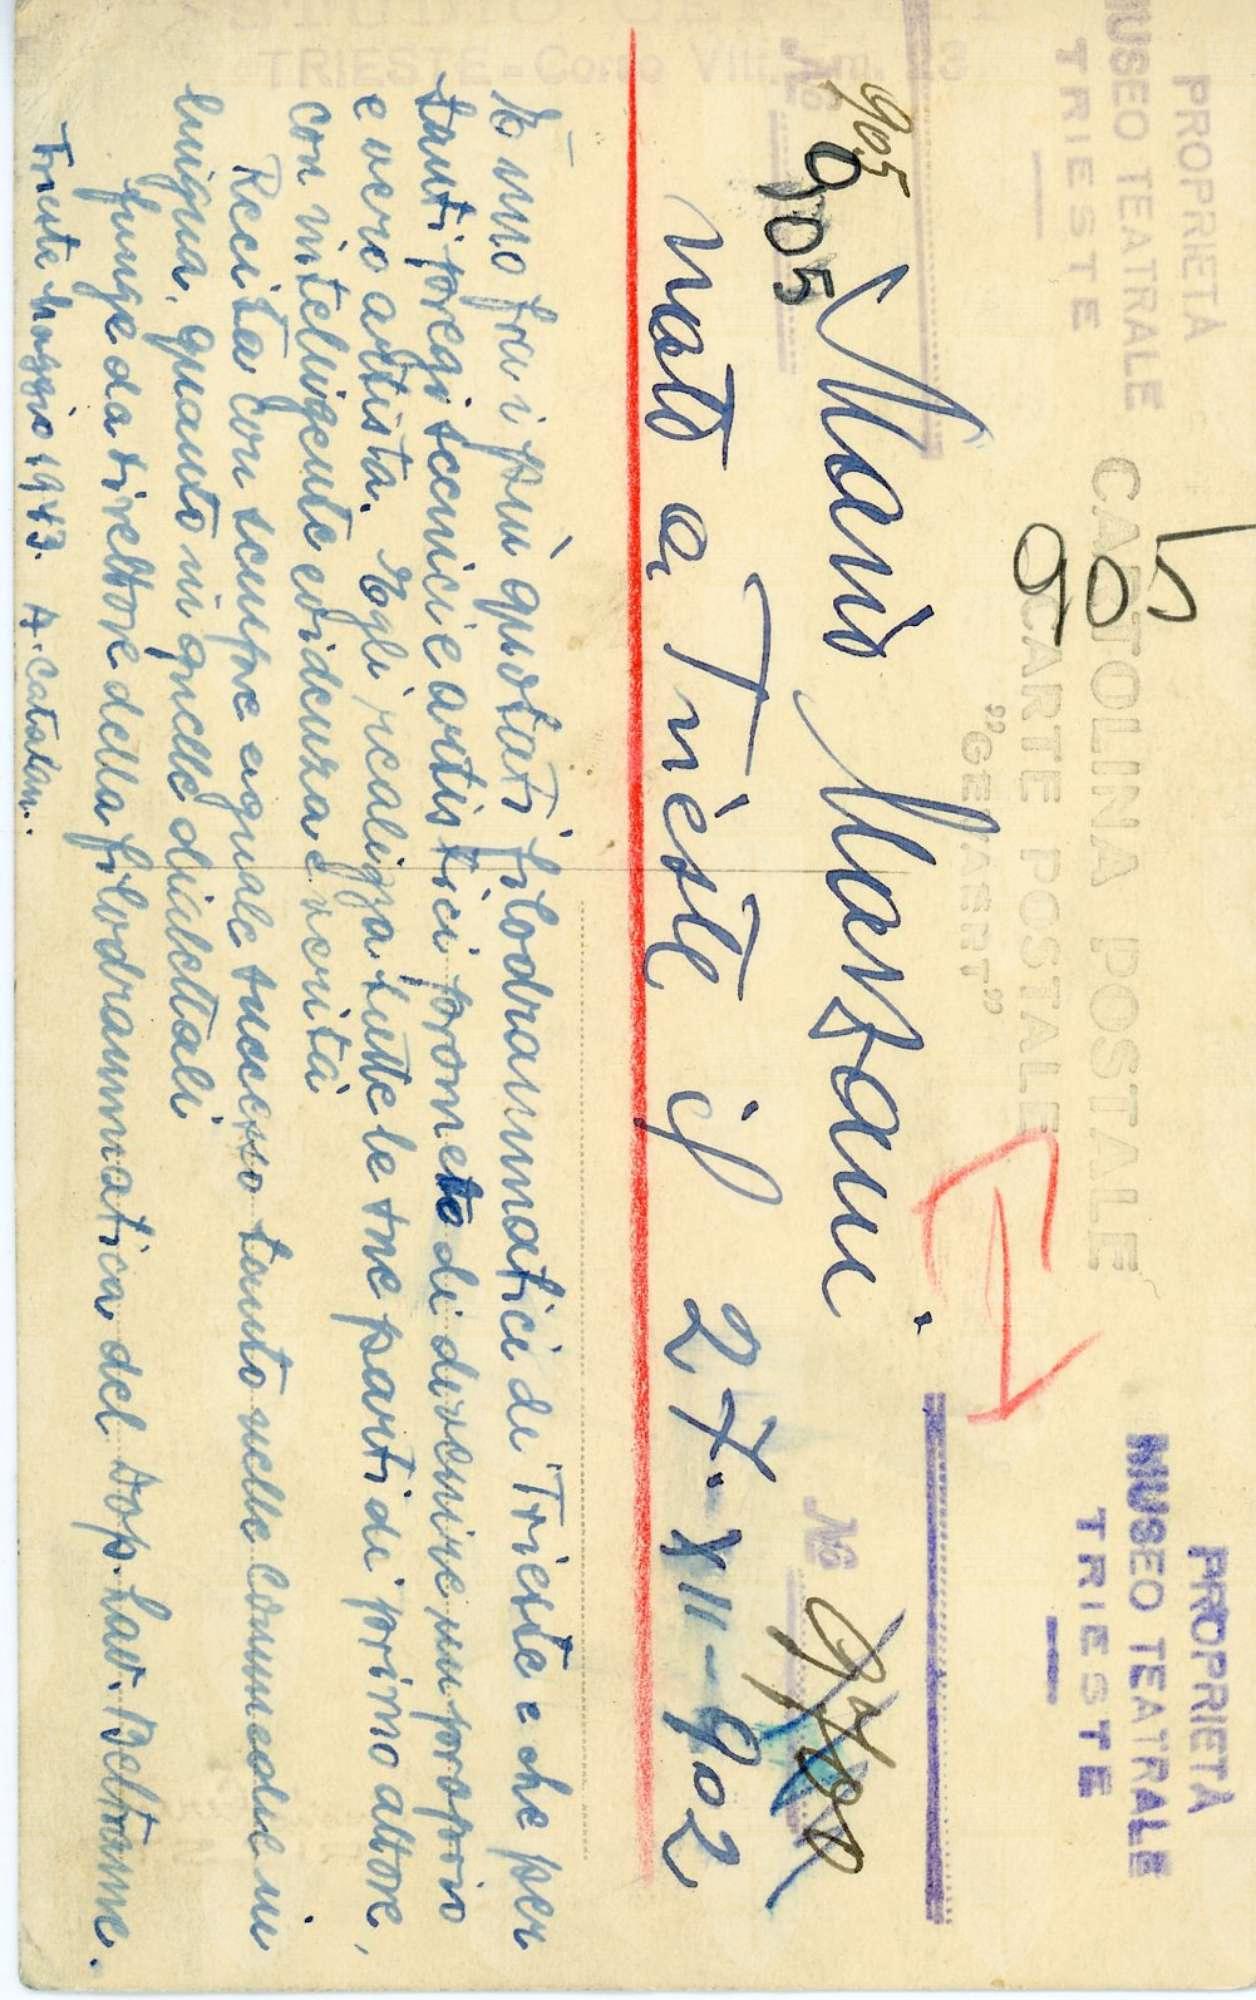 PROPRIETÀ
MUSEO TEATRALE
TRIESTE
PROPRIETÀ
MUSEO TEATRALE
TRIESTE
CARTOLINA POSTALE
CARTE POSTALE
"GEVAERT"
905
I
No
No
905
905
Mario Marsani.
nato a Trieste il 27. XII - 902
È uno fra i più quotati filodrammatici di Trieste e che per
tanti pregi scenici e artistici promette di divenire un proprio
e vero artista. Egli realizza tutte le sue parti di primo attore,
con intelligente evidenza e verità
Recita con sempre eguale successo tanto nelle commedie in
lingua, quanto in quelle dialettali
funge da direttore della filodrammatica del Dop. Lav. Beltrame.
Trieste Maggio 1943. A. Catalan.
TRIESTE - Corso Vitt. Em. 13